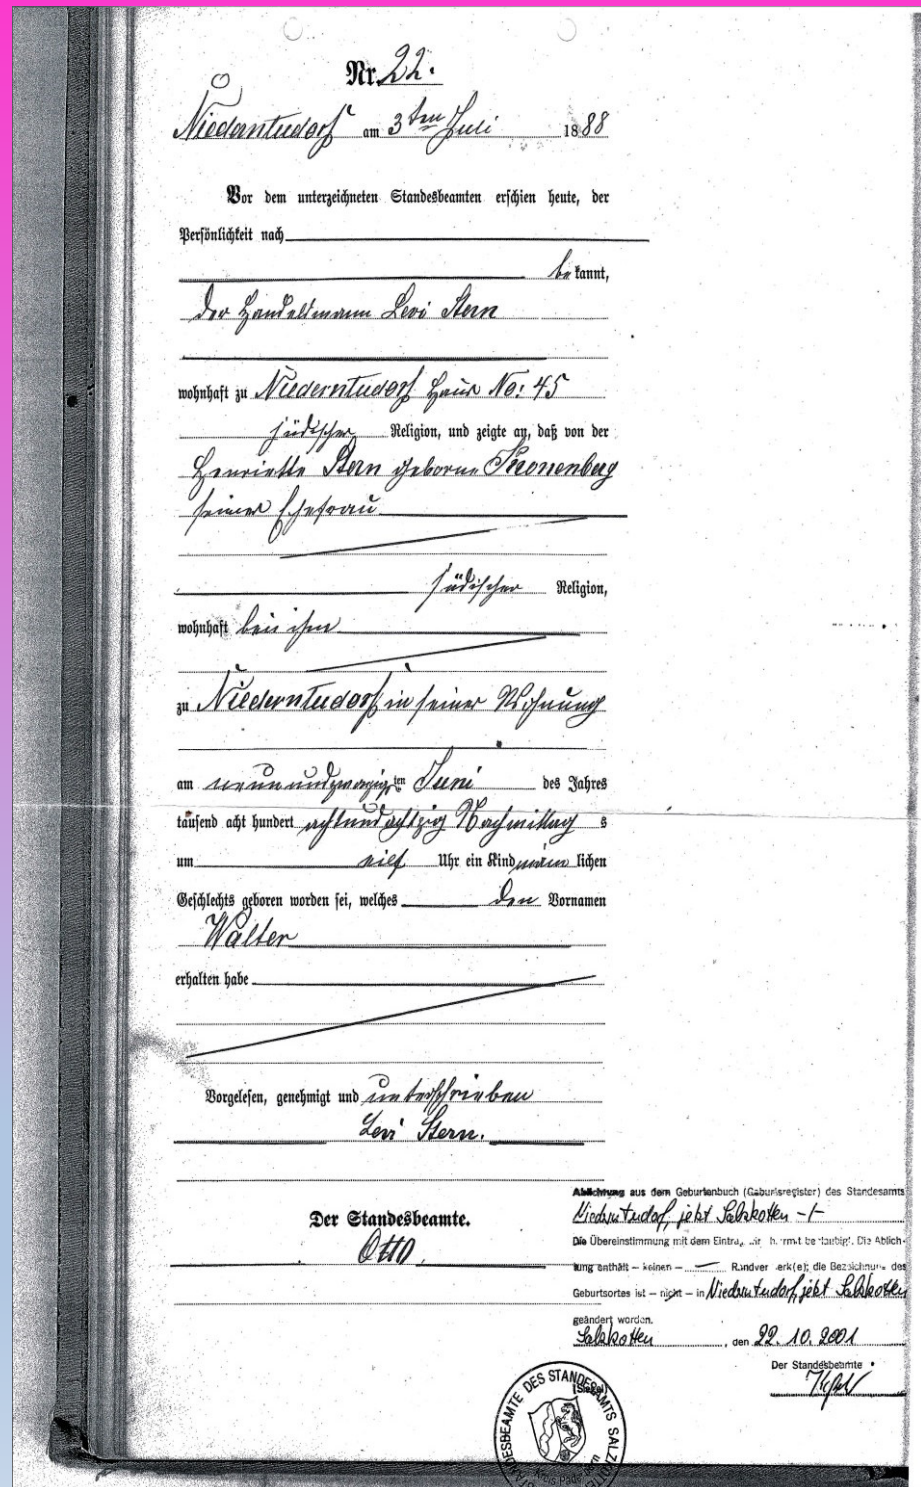 Nr. 22.
Niederntudorf am 3ten Juli 1888
Vor dem unterzeichneten Standesbeamten erschien heute, der
Persönlichkeit nach
bekannt,
der Handelsmann Levi Stern
wohnhaft zu Niederntudorf Haus No: 45
jüdischer Religion, und zeigte an, daß von der
Henriette Stern geborne Kronenberg
seiner Ehefrau
jüdischer Religion,
wohnhaft bei ihm
zu Niederntudorf in seiner Wohnung
am neunundzwanzigten Juni des Jahres
tausend acht hundert achtundachtzig Nachmittags
um elf Uhr ein Kind männlichen
Geschlechts geboren worden sei, welches den Vornamen
Walter
erhalten habe
Vorgelesen, genehmigt und unterschrieben
Levi Stern.
Der Standesbeamte.
Otto
Ablichtung aus dem Geburtenbuch (Geburtsregister) des Standesamts
Niederntudorf, jetzt Salzkotten -/-
Die Übereinstimmung mit dem Eintrag wird hiermit beglaubigt. Die Ablich-
tung enthält – keinen – Randvermerk(e); die Bezeichnung des
Geburtsortes ist – nicht – in Niederntudorf, jetzt Salzkotten
geändert worden.
Salzkotten, den 22. 10. 2001
Der Standesbeamte
(Siegel)
STANDESBEAMTE DES STANDESAMTS SALZKOTTEN
Kreis Paderborn